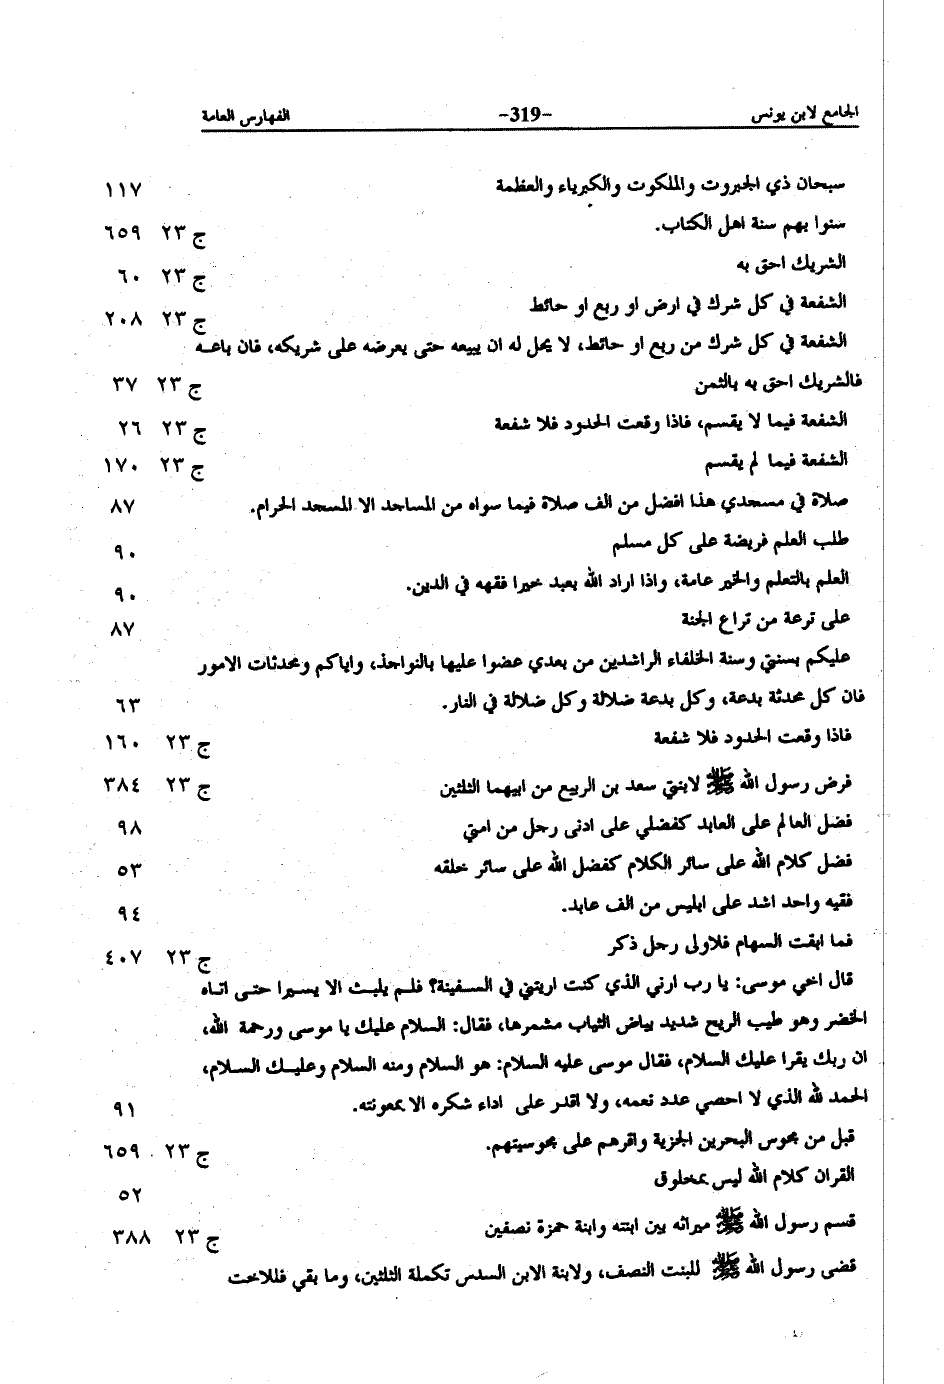 الجامع لابن يونس -319- الفهارس العامة
سبحان ذي الجبروت والملكوت والكبرياء والعظمة ١١٧
سنوا بهم سنة اهل الكتاب. ج ٢٣ ٦٥٩
الشريك احق به ج ٢٣ ٦٠
الشفعة في كل شرك في ارض او ربع او حائط ج ٢٣ ٢٠٨
الشفعة في كل شرك من ربع او حائط، لا يحل له ان يبيعه حتى يعرضه على شريكه، فان باعه
فالشريك احق به بالثمن ج ٢٣ ٣٧
الشفعة فيما لا يقسم، فاذا وقعت الحدود فلا شفعة ج ٢٣ ٢٦
الشفعة فيما لم يقسم ج ٢٣ ١٧٠
صلاة في مسجدي هذا افضل من الف صلاة فيما سواه من المساجد الا المسجد الحرام. ٨٧
طلب العلم فريضة على كل مسلم ٩٠
العلم بالتعلم والخير عامة، واذا اراد الله بعبد خيرا فقهه في الدين. ٩٠
على ترعة من تراع الجنة ٨٧
عليكم بسنتي وسنة الخلفاء الراشدين من بعدي عضوا عليها بالنواجذ، واياكم ومحدثات الامور
فان كل محدثة بدعة، وكل بدعة ضلالة وكل ضلالة في النار. ٦٣
فاذا وقعت الحدود فلا شفعة ج ٢٣ ١٦٠
فرض رسول الله ﷺ لابنتي سعد بن الربيع من ابيهما الثلثين ج ٢٣ ٣٨٤
فضل العالم على العابد كفضلي على ادنى رجل من امتي ٩٨
فضل كلام الله على سائر الكلام كفضل الله على سائر خلقه ٥٣
فقيه واحد اشد على ابليس من الف عابد. ٩٤
فما ابقت السهام فلاولى رجل ذكر ج ٢٣ ٤٠٧
قال اخي موسى: يا رب ارني الذي كنت اريتني في السفينة؟ فلم يلبث الا يسيرا حتى اتاه
الخضر وهو طيب الريح شديد بياض الثياب مشمرها، فقال: السلام عليك يا موسى ورحمة الله،
ان ربك يقرا عليك السلام، فقال موسى عليه السلام: هو السلام ومنه السلام وعليك السلام،
الحمد لله الذي لا احصي عدد نعمه، ولا اقدر على اداء شكره الا بمعونته. ٩١
قبل من مجوس البحرين الجزية واقرهم على مجوسيتهم. ج ٢٣ ٦٥٩
القران كلام الله ليس بمخلوق ٥٢
قسم رسول الله ﷺ ميراثه بين ابنته وابنة حمزة نصفين ج ٢٣ ٣٨٨
قضى رسول الله ﷺ للبنت النصف، ولابنة الابن السدس تكملة الثلثين، وما بقي فللاخت